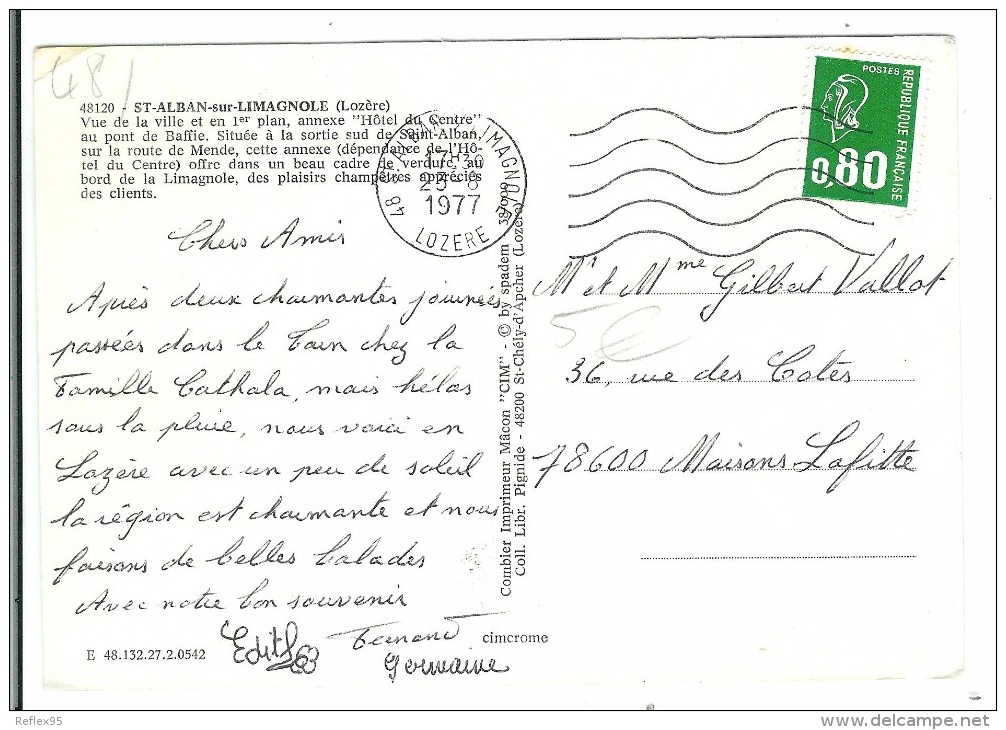 48/
48120 - ST-ALBAN-sur-LIMAGNOLE (Lozère)
Vue de la ville et en 1er plan, annexe "Hôtel du Centre"
au pont de Baffie. Située à la sortie sud de Saint-Alban,
sur la route de Mende, cette annexe (dépendance de l'Hô-
tel du Centre) offre dans un beau cadre de verdure, au
bord de la Limagnole, des plaisirs champêtres appréciés
des clients.
LIMAGNOLE
1977
48
LOZERE
POSTES
REPUBLIQUE FRANÇAISE
0,80
Chers Amis
Après deux charmantes journées
passées dans le Tarn chez la
Famille Cathala, mais hélas
sous la pluie, nous voici en
Lozère avec un peu de soleil
la région est charmante et nous
faisons de belles balades
Avec notre bon souvenir
Edith Fernand
Germaine
E 48.132.27.2.0542
cimcrome
Combier Imprimeur Mâcon "CIM" - © by spadem
Coll. Libr. Pignide - 48200 St-Chély-d'Apcher (Lozère)
Mr et Mme Gilbert Vallot
5 €
36, rue des Cotes
78600 Maisons Lafitte
Reflex95
delcampe.net